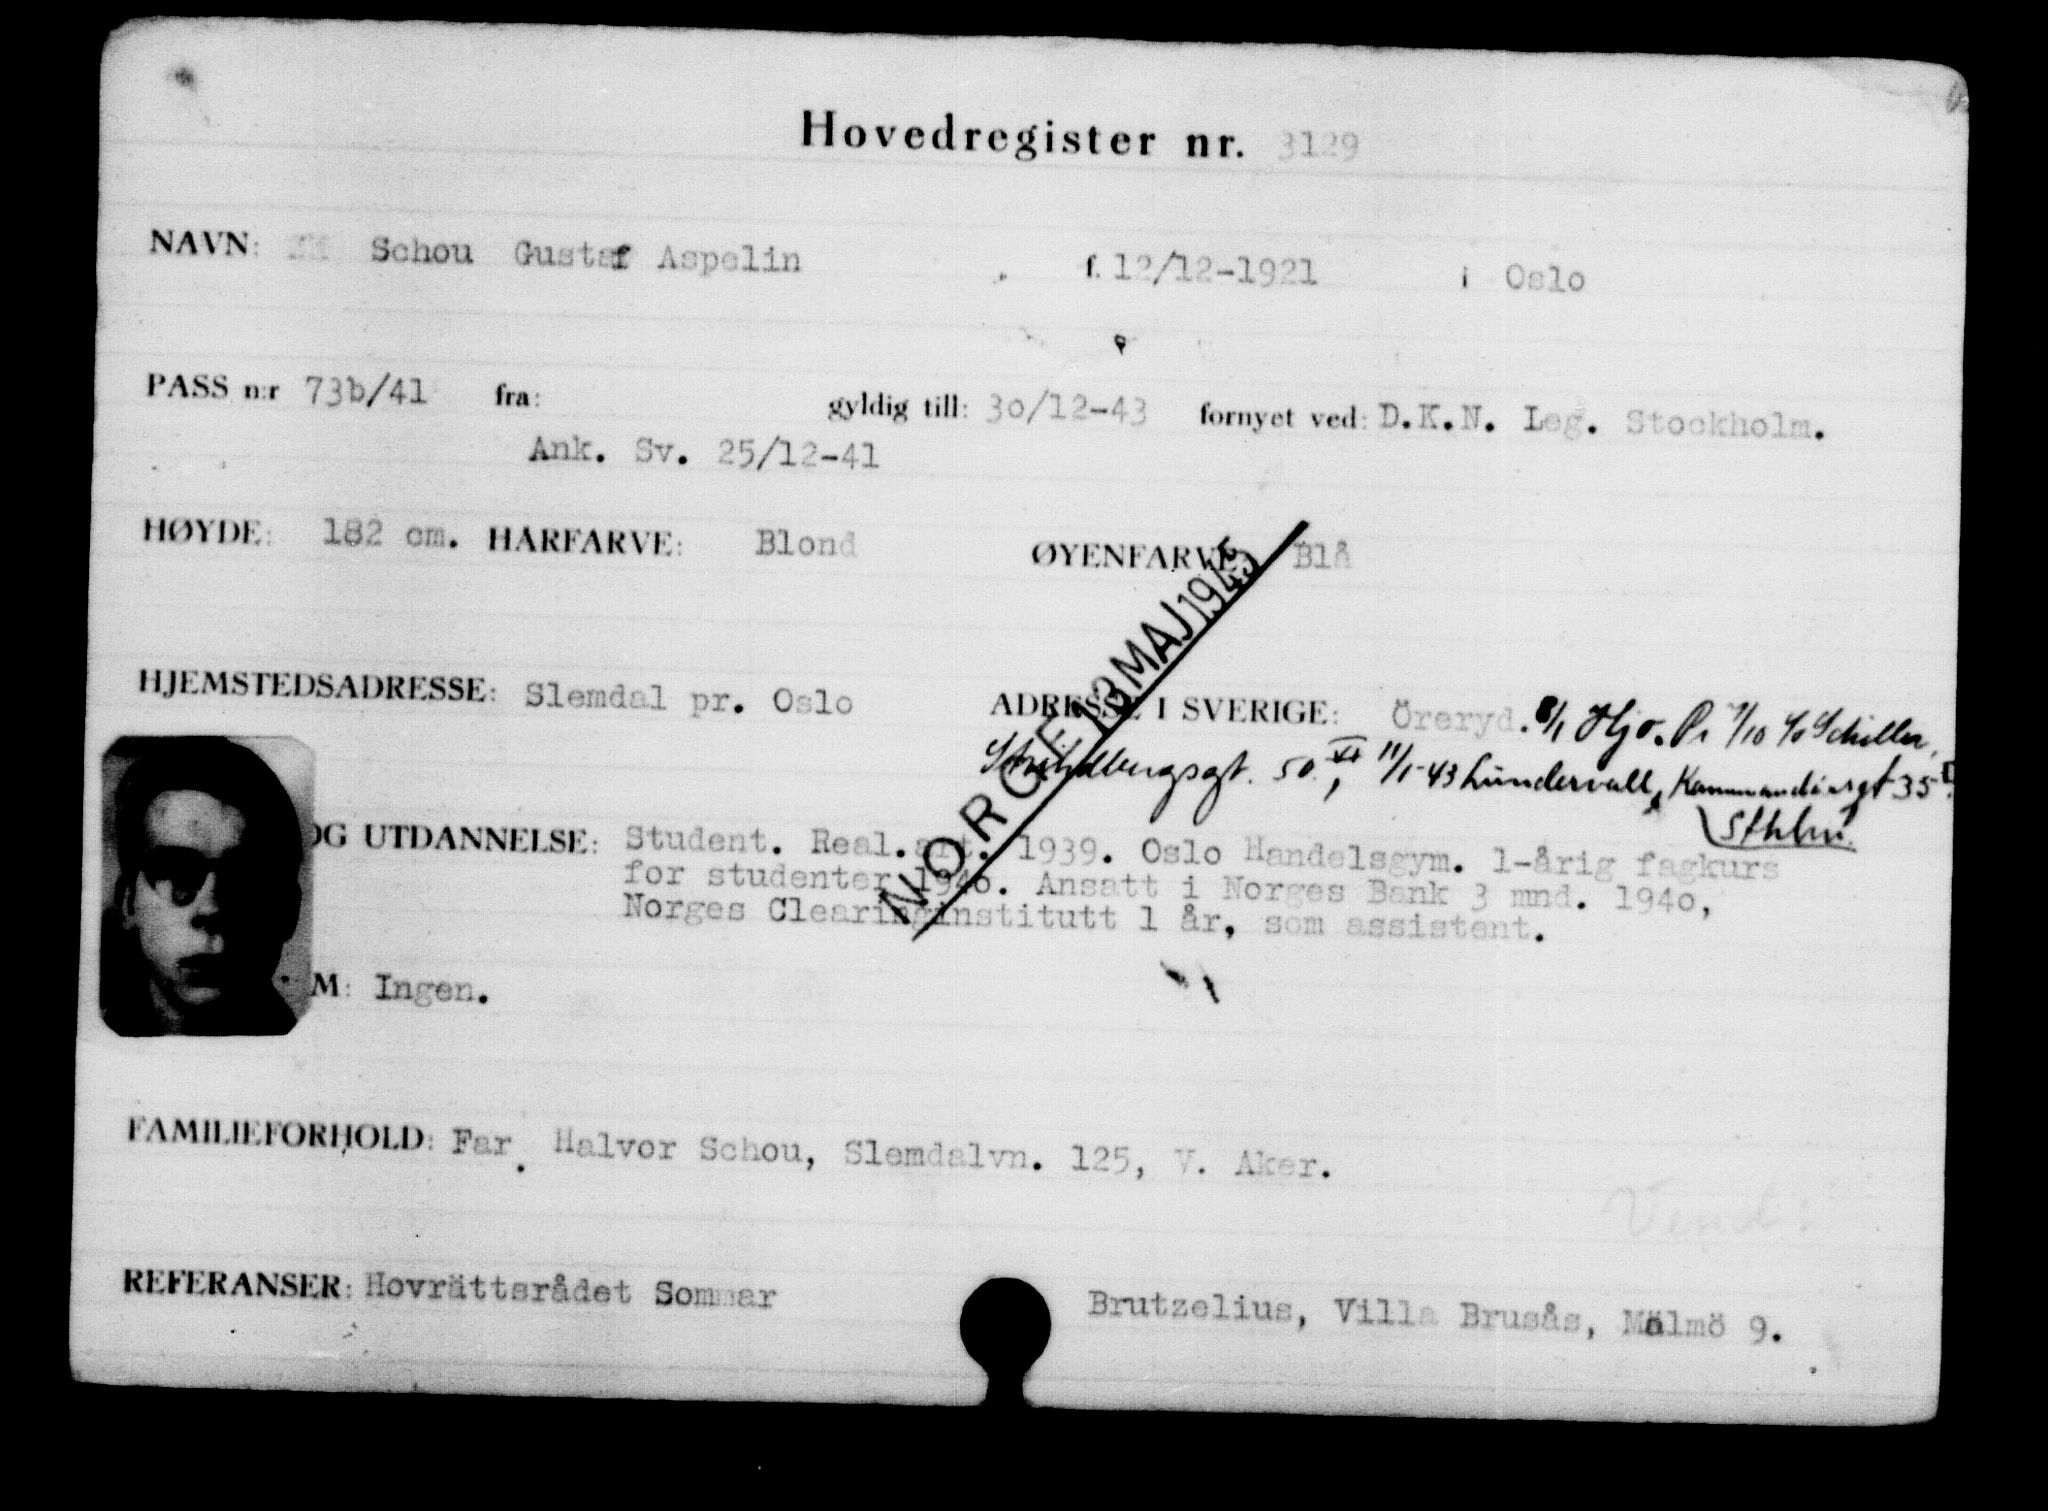 Hovedregister nr. 3129
NAVN: Schou Gustaf Aspelin f. 12/12-1921 i Oslo
PASS n:r 73b/41 fra: gyldig till: 30/12-43 fornyet ved: D.K.N. Leg. Stockholm.
Ank. Sv. 25/12-41
HØYDE: 182 cm. HARFARVE: Blond ØYENFARVE: Blå
HJEMSTEDSADRESSE: Slemdal pr. Oslo ADRESSE I SVERIGE: Öreryd. 8/1 Hjo. Pr 7/10 c/o Schiller,
Strindbergsgt. 50 VI, 11/1-43 Lundervall, Kommendörsgt 35
Sthlm.
NORGE 13 MAJ 1945
OG UTDANNELSE: Student. Real.art. 1939. Oslo Handelsgym. 1-årig fagkurs
for studenter 1940. Ansatt i Norges Bank 3 mnd. 1940,
Norges Clearinginstitutt 1 år, som assistent.
M: Ingen.
FAMILIEFORHOLD: Far. Halvor Schou, Slemdalvn. 125, V. Aker.
Vend!
REFERANSER: Hovrättsrådet Sommar Brutzelius, Villa Brusås, Malmö 9.